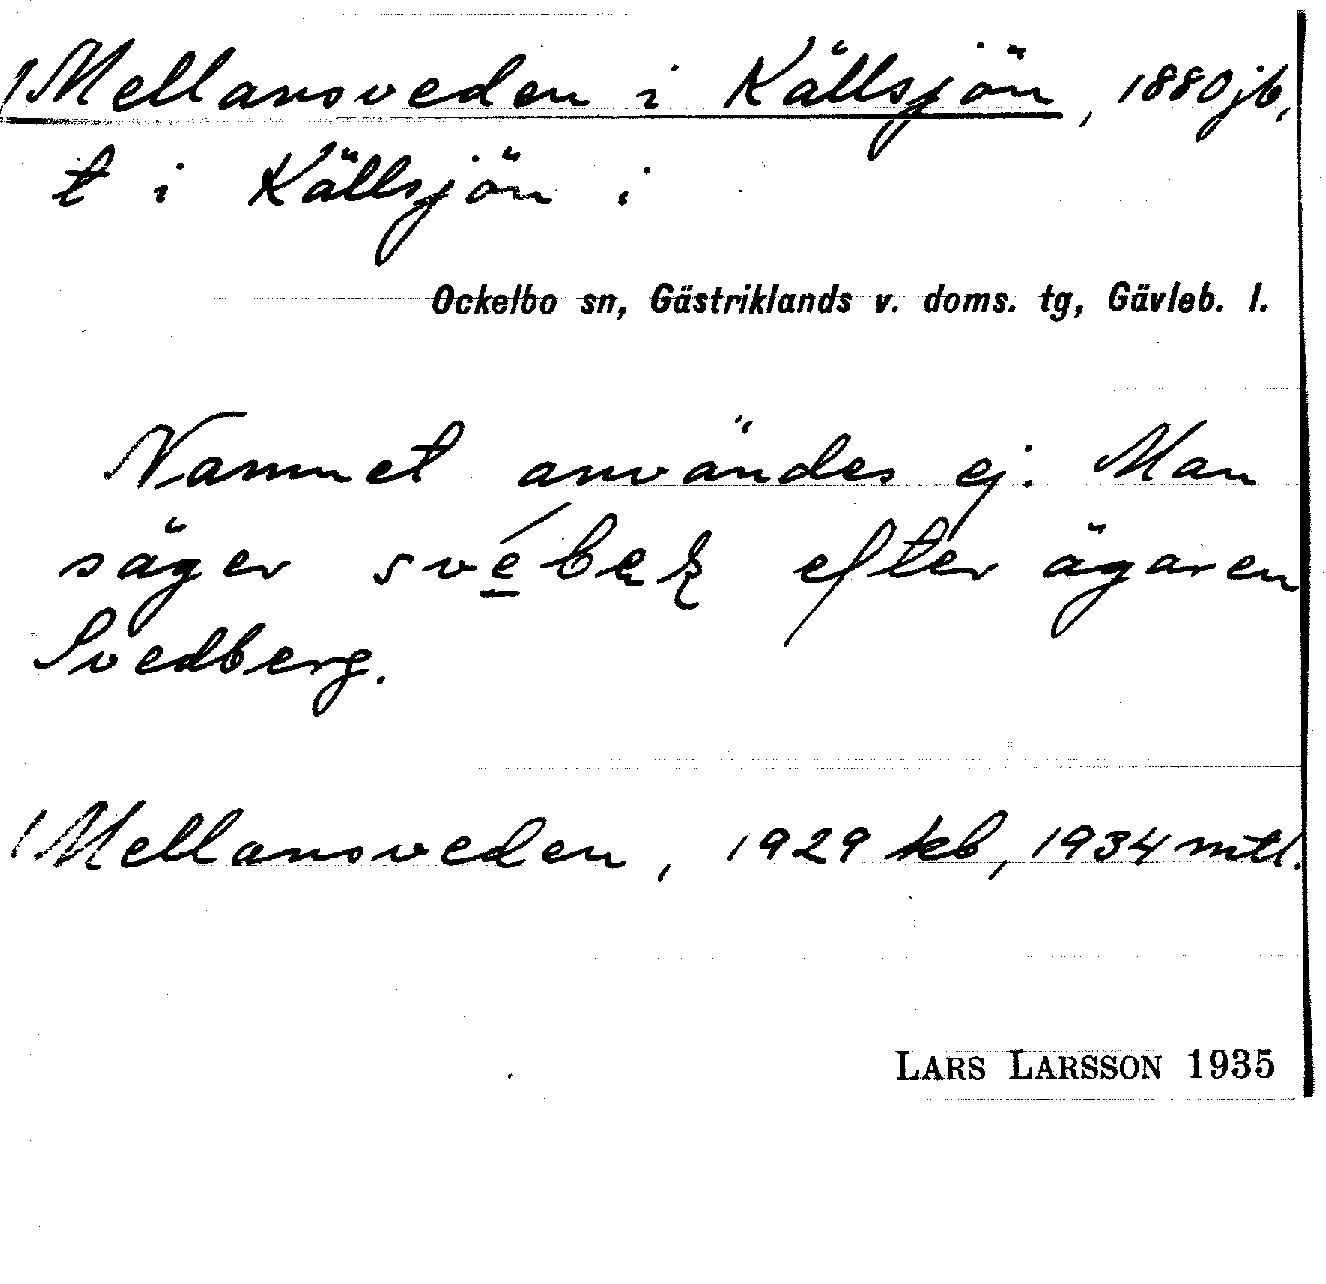 /Mellansveden i Källsjön, 1880 jb,
t i Källsjön i
Ockelbo sn, Gästriklands v. doms. tg, Gävleb. l.
Namnet användes ej. Man
säger efter ägaren
Svedberg.
/Mellansveden, 1929 kb, 1934 mtl.
LARS LARSSON 1935